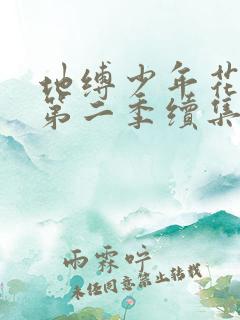 地缚少年花
第二季续集
雨霖咛
未经同意禁止转载